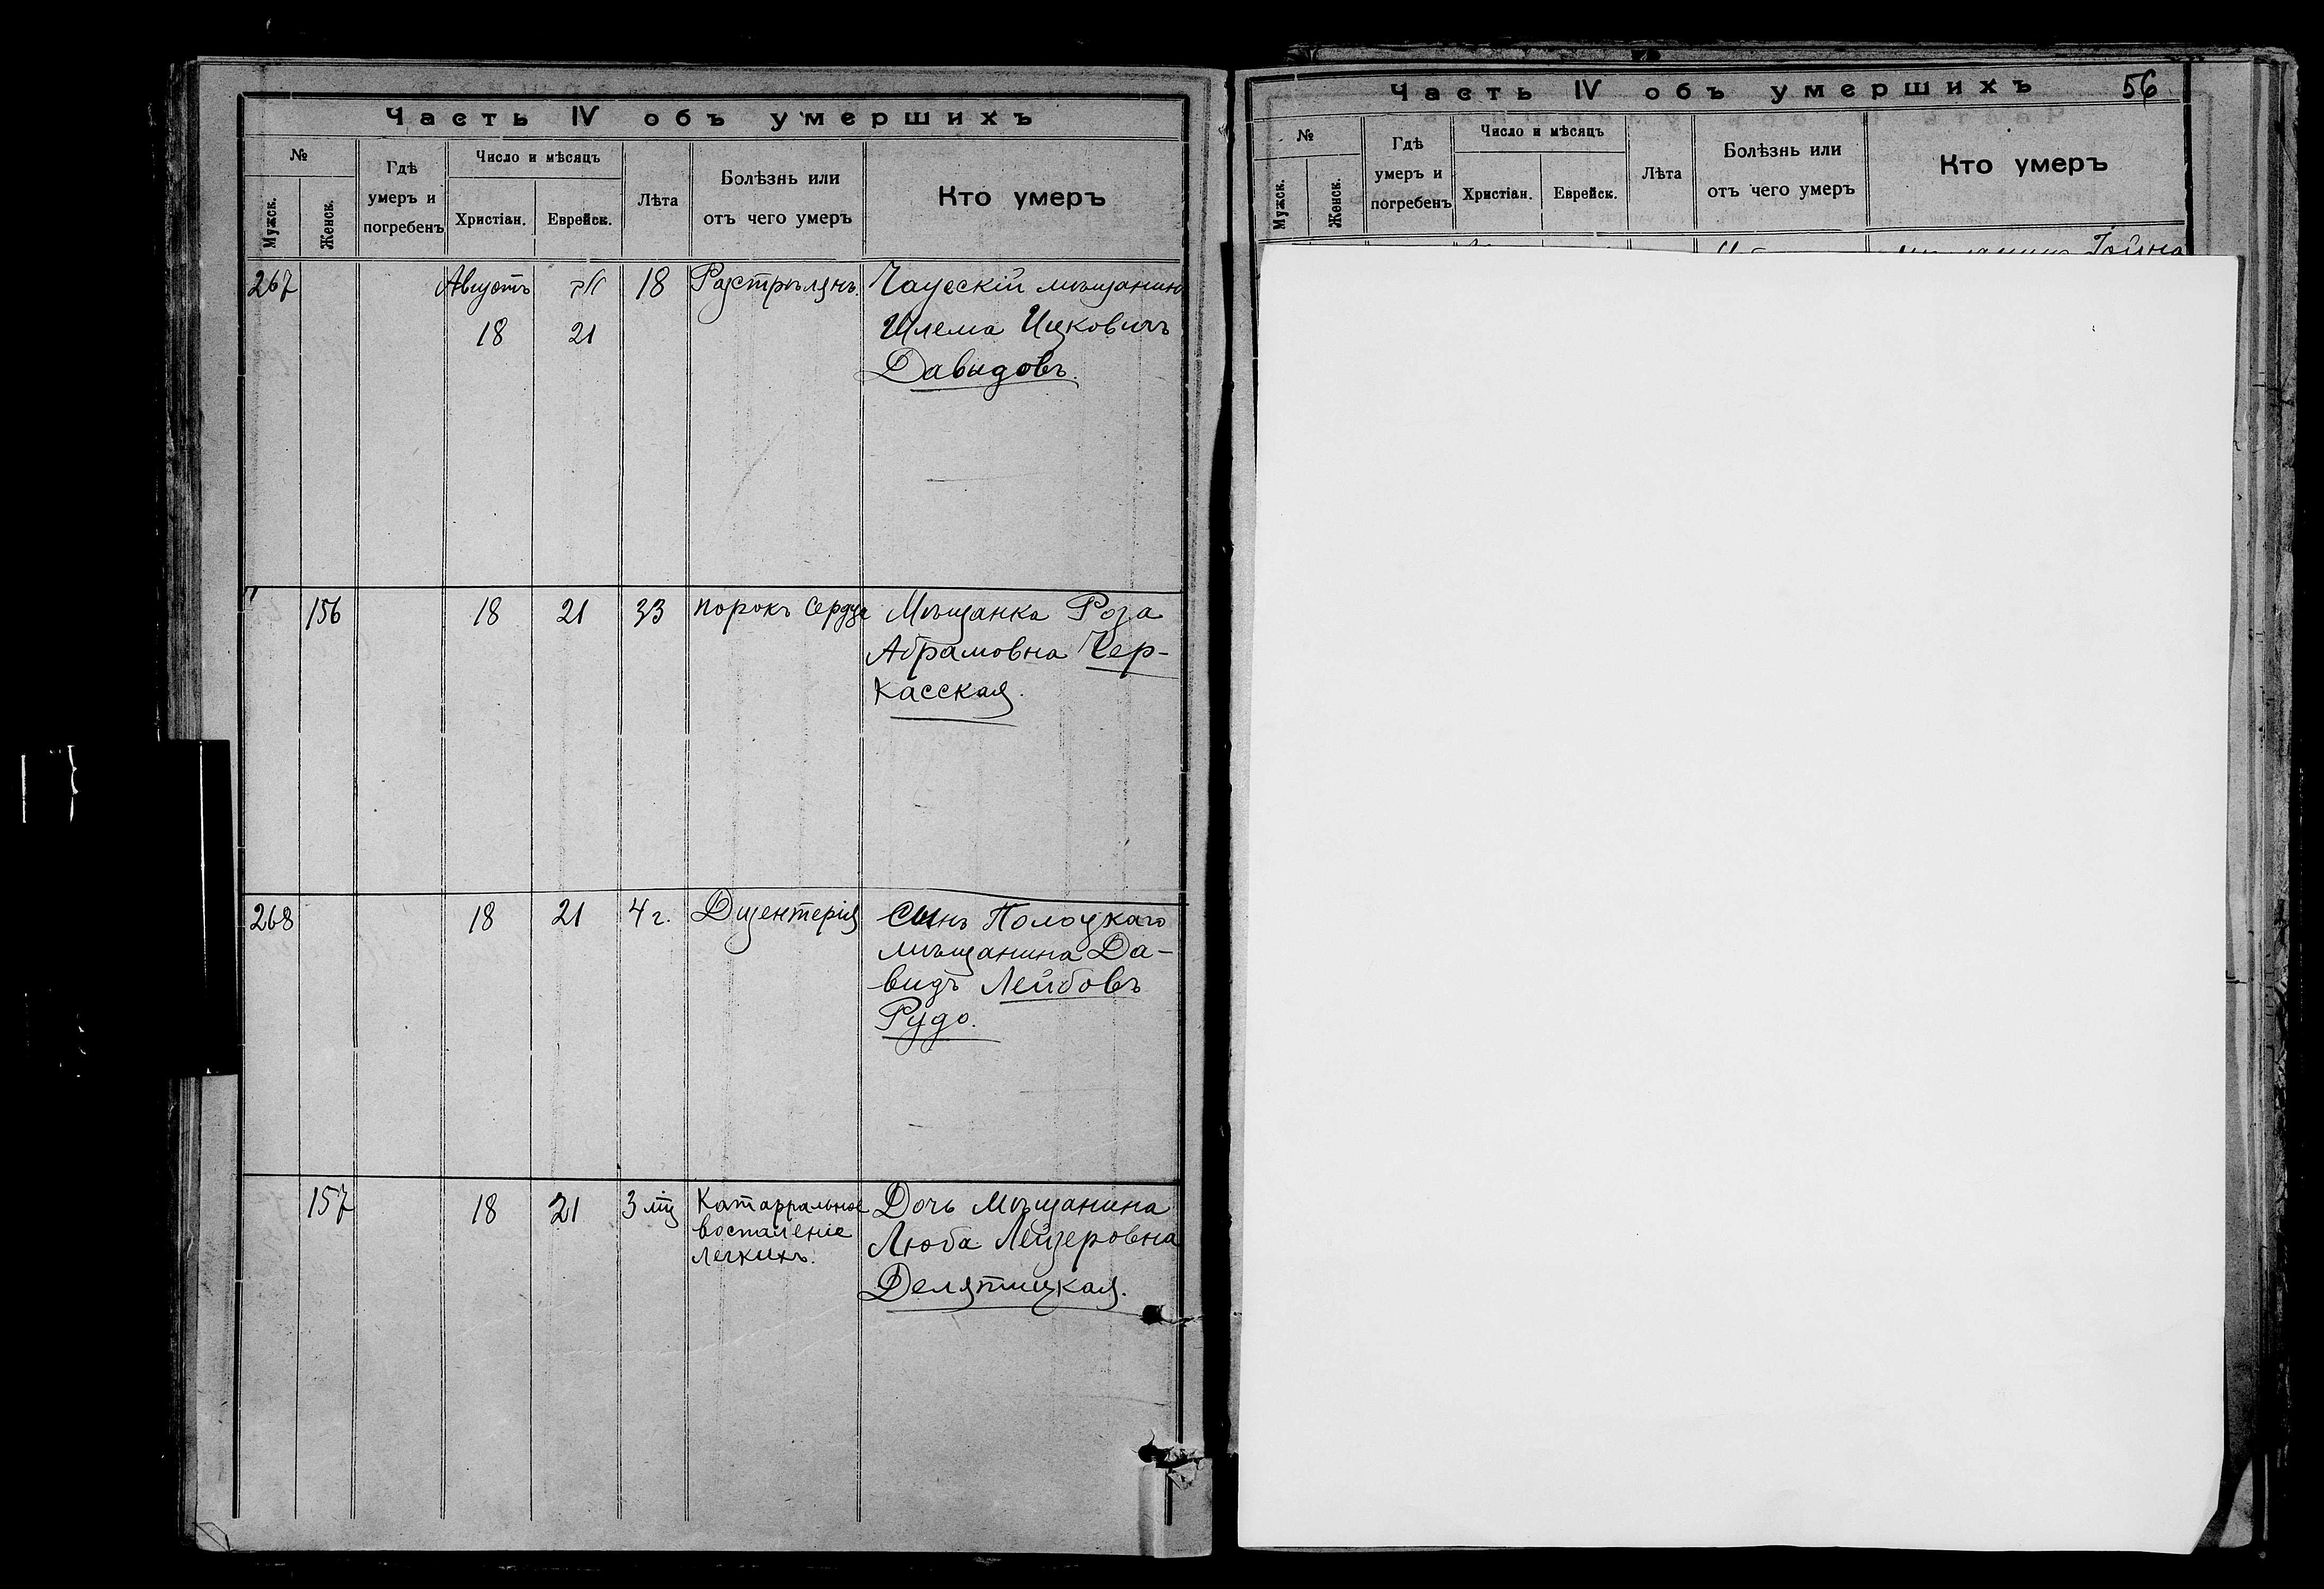 Часть IV объ умершихъ
№
Мужск.
Женск.
Гдѣ
умеръ и
погребенъ
Число и мѣсяцъ
Христіан.
Еврейск.
Лѣта
Болѣзнь или
отъ чего умеръ
Кто умеръ
267
Августъ
18
21
18
Разстрѣлянъ.
Чаусскій мѣщанинъ
Шлема Ицковичъ
Давыдовъ.
156
18
21
33
порокъ сердца
Мѣщанка Роза
Абрамовна Чер-
касская.
268
18
21
4 г.
Дизентерія
Сынъ Полоцкаго
мѣщанина Да-
видъ Лейбовъ
Рудо.
157
18
21
3 мц
Катарральное
воспаленіе
легкихъ.
Дочь Мѣщанина
Люба Лейзеровна
Делятицкая.
Часть IV объ умершихъ
56
№
Мужск.
Женск.
Гдѣ
умеръ и
погребенъ
Число и мѣсяцъ
Христіан.
Еврейск.
Лѣта
Болѣзнь или
отъ чего умеръ
Кто умеръ